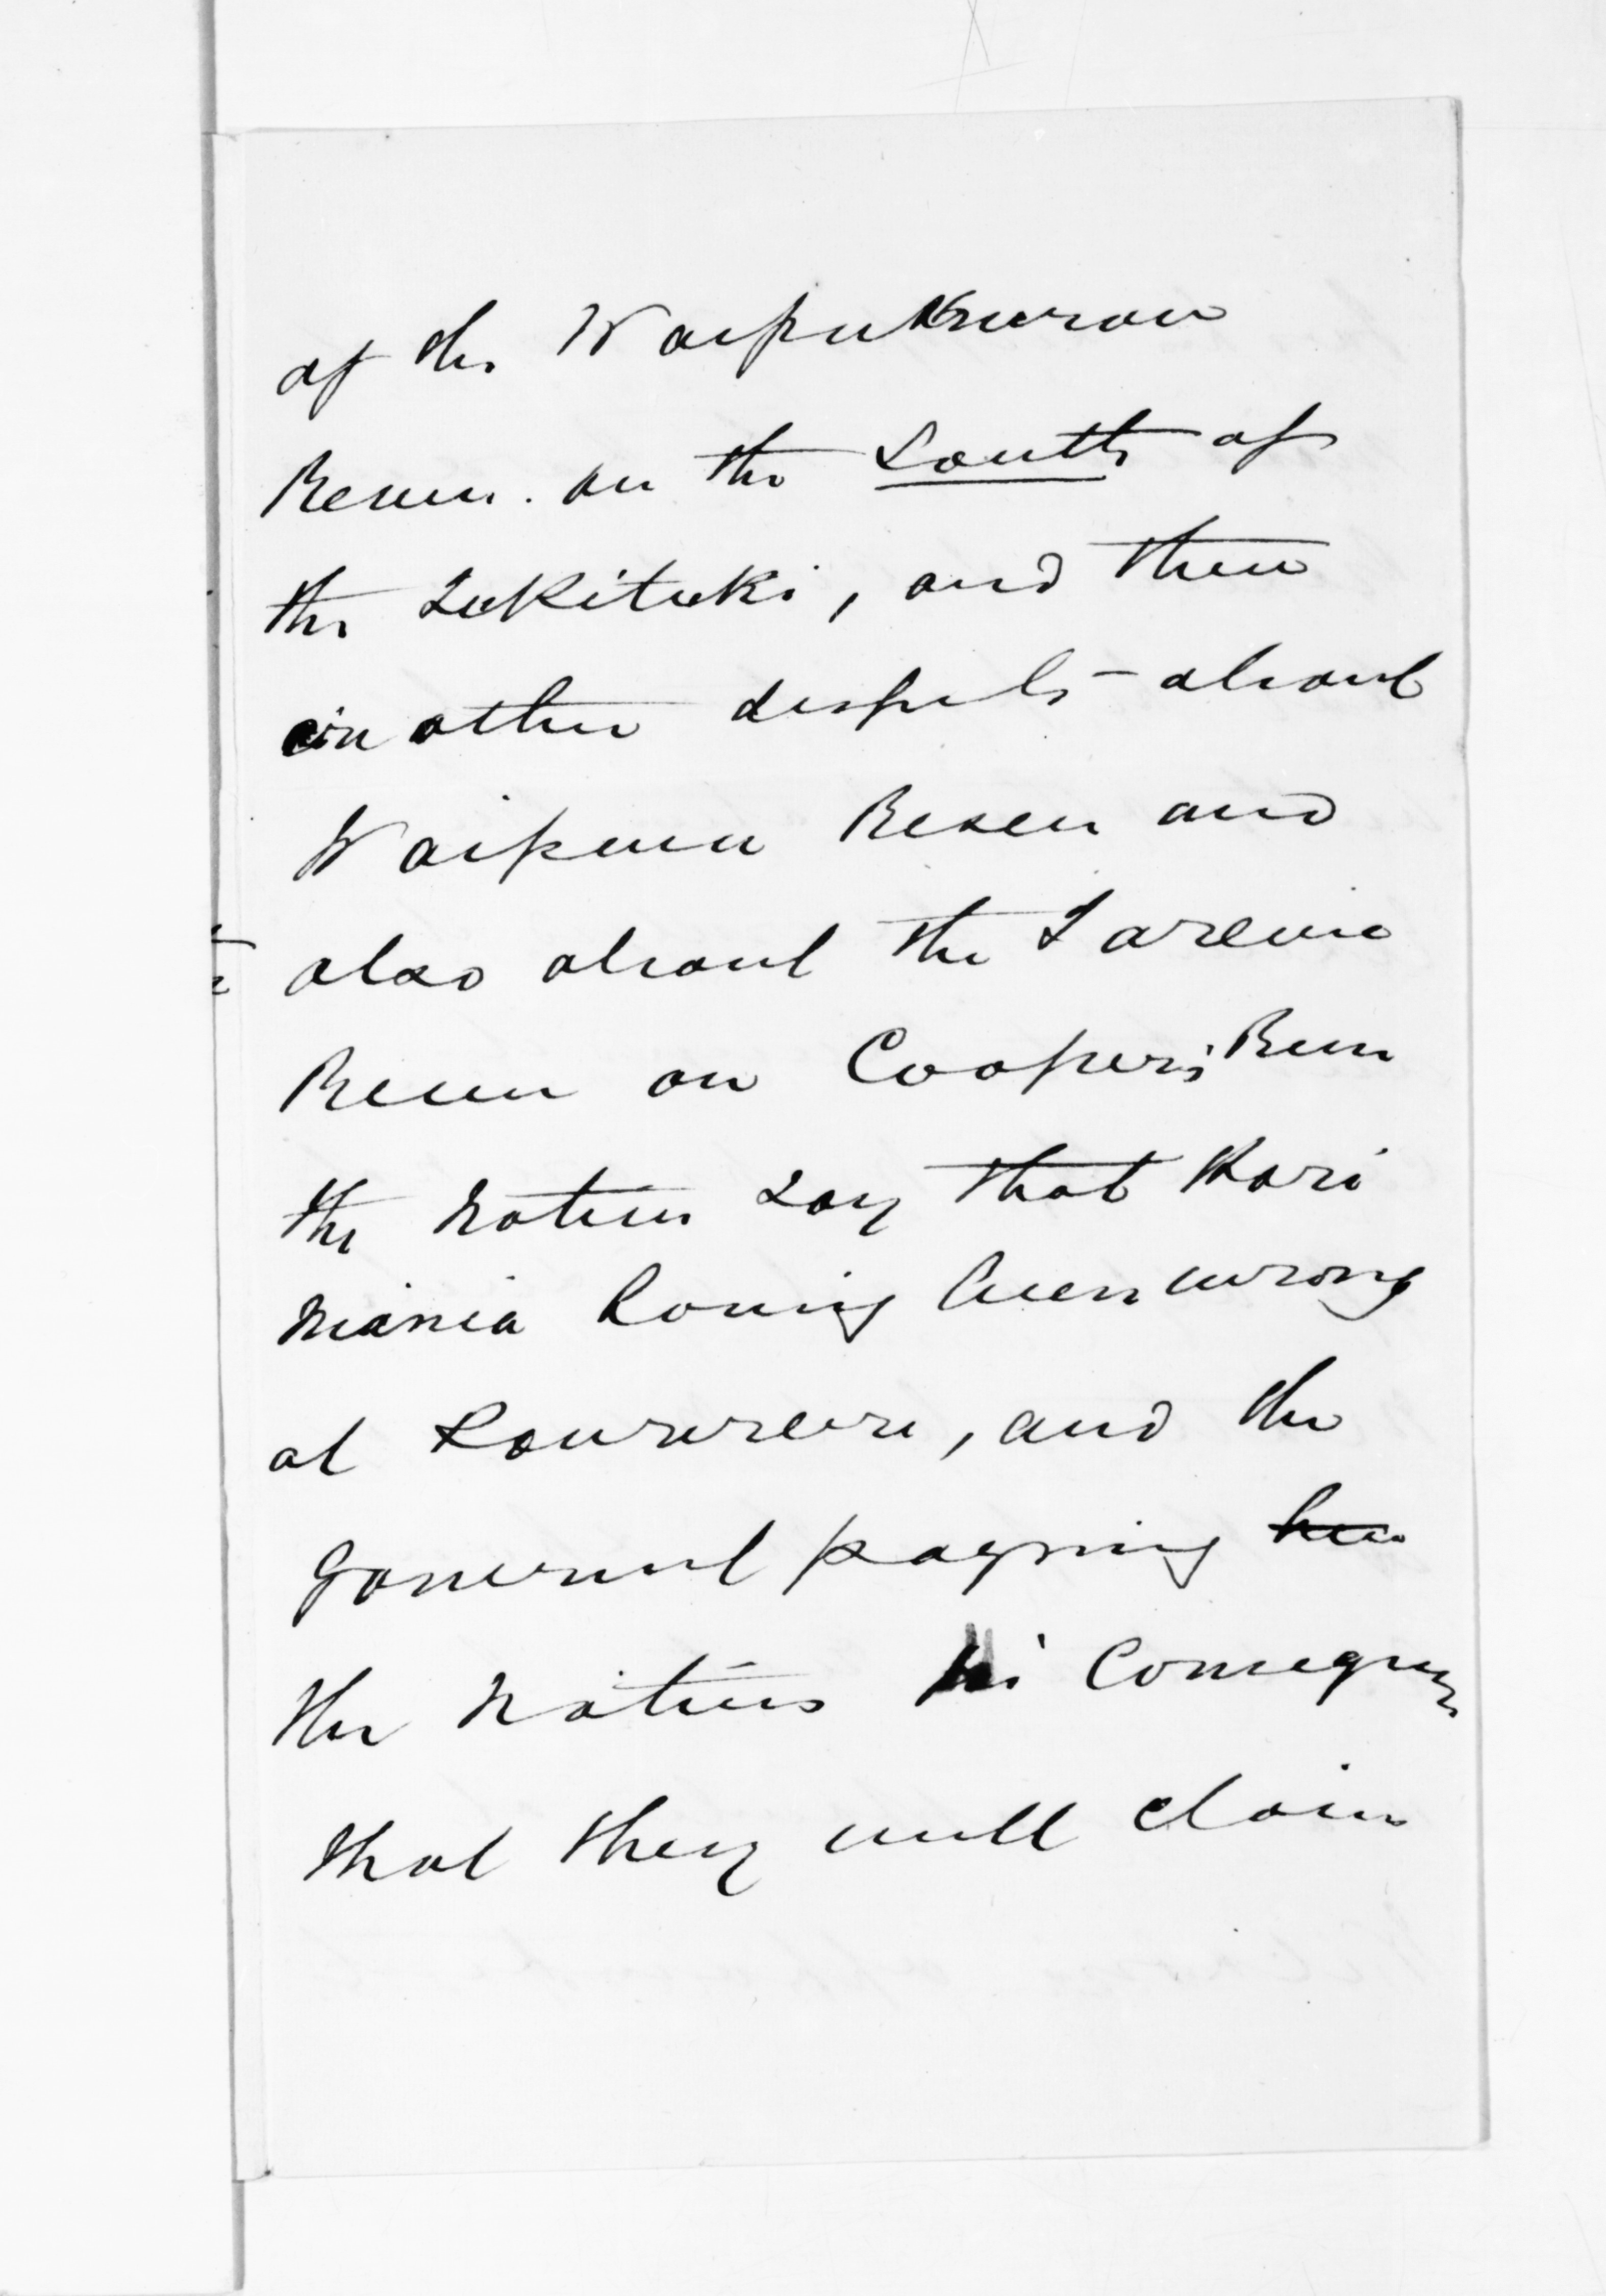 of the Waipukurau
Reserve. on the South of
the Tukituki, and there
in other dispute about
Waipawa Reserve and
also about the Tarewa
Reserve on Cooper's Run
the Natives say that
having been wrong
at, and the
Government paying him
the Natives in consequence
that they will claim